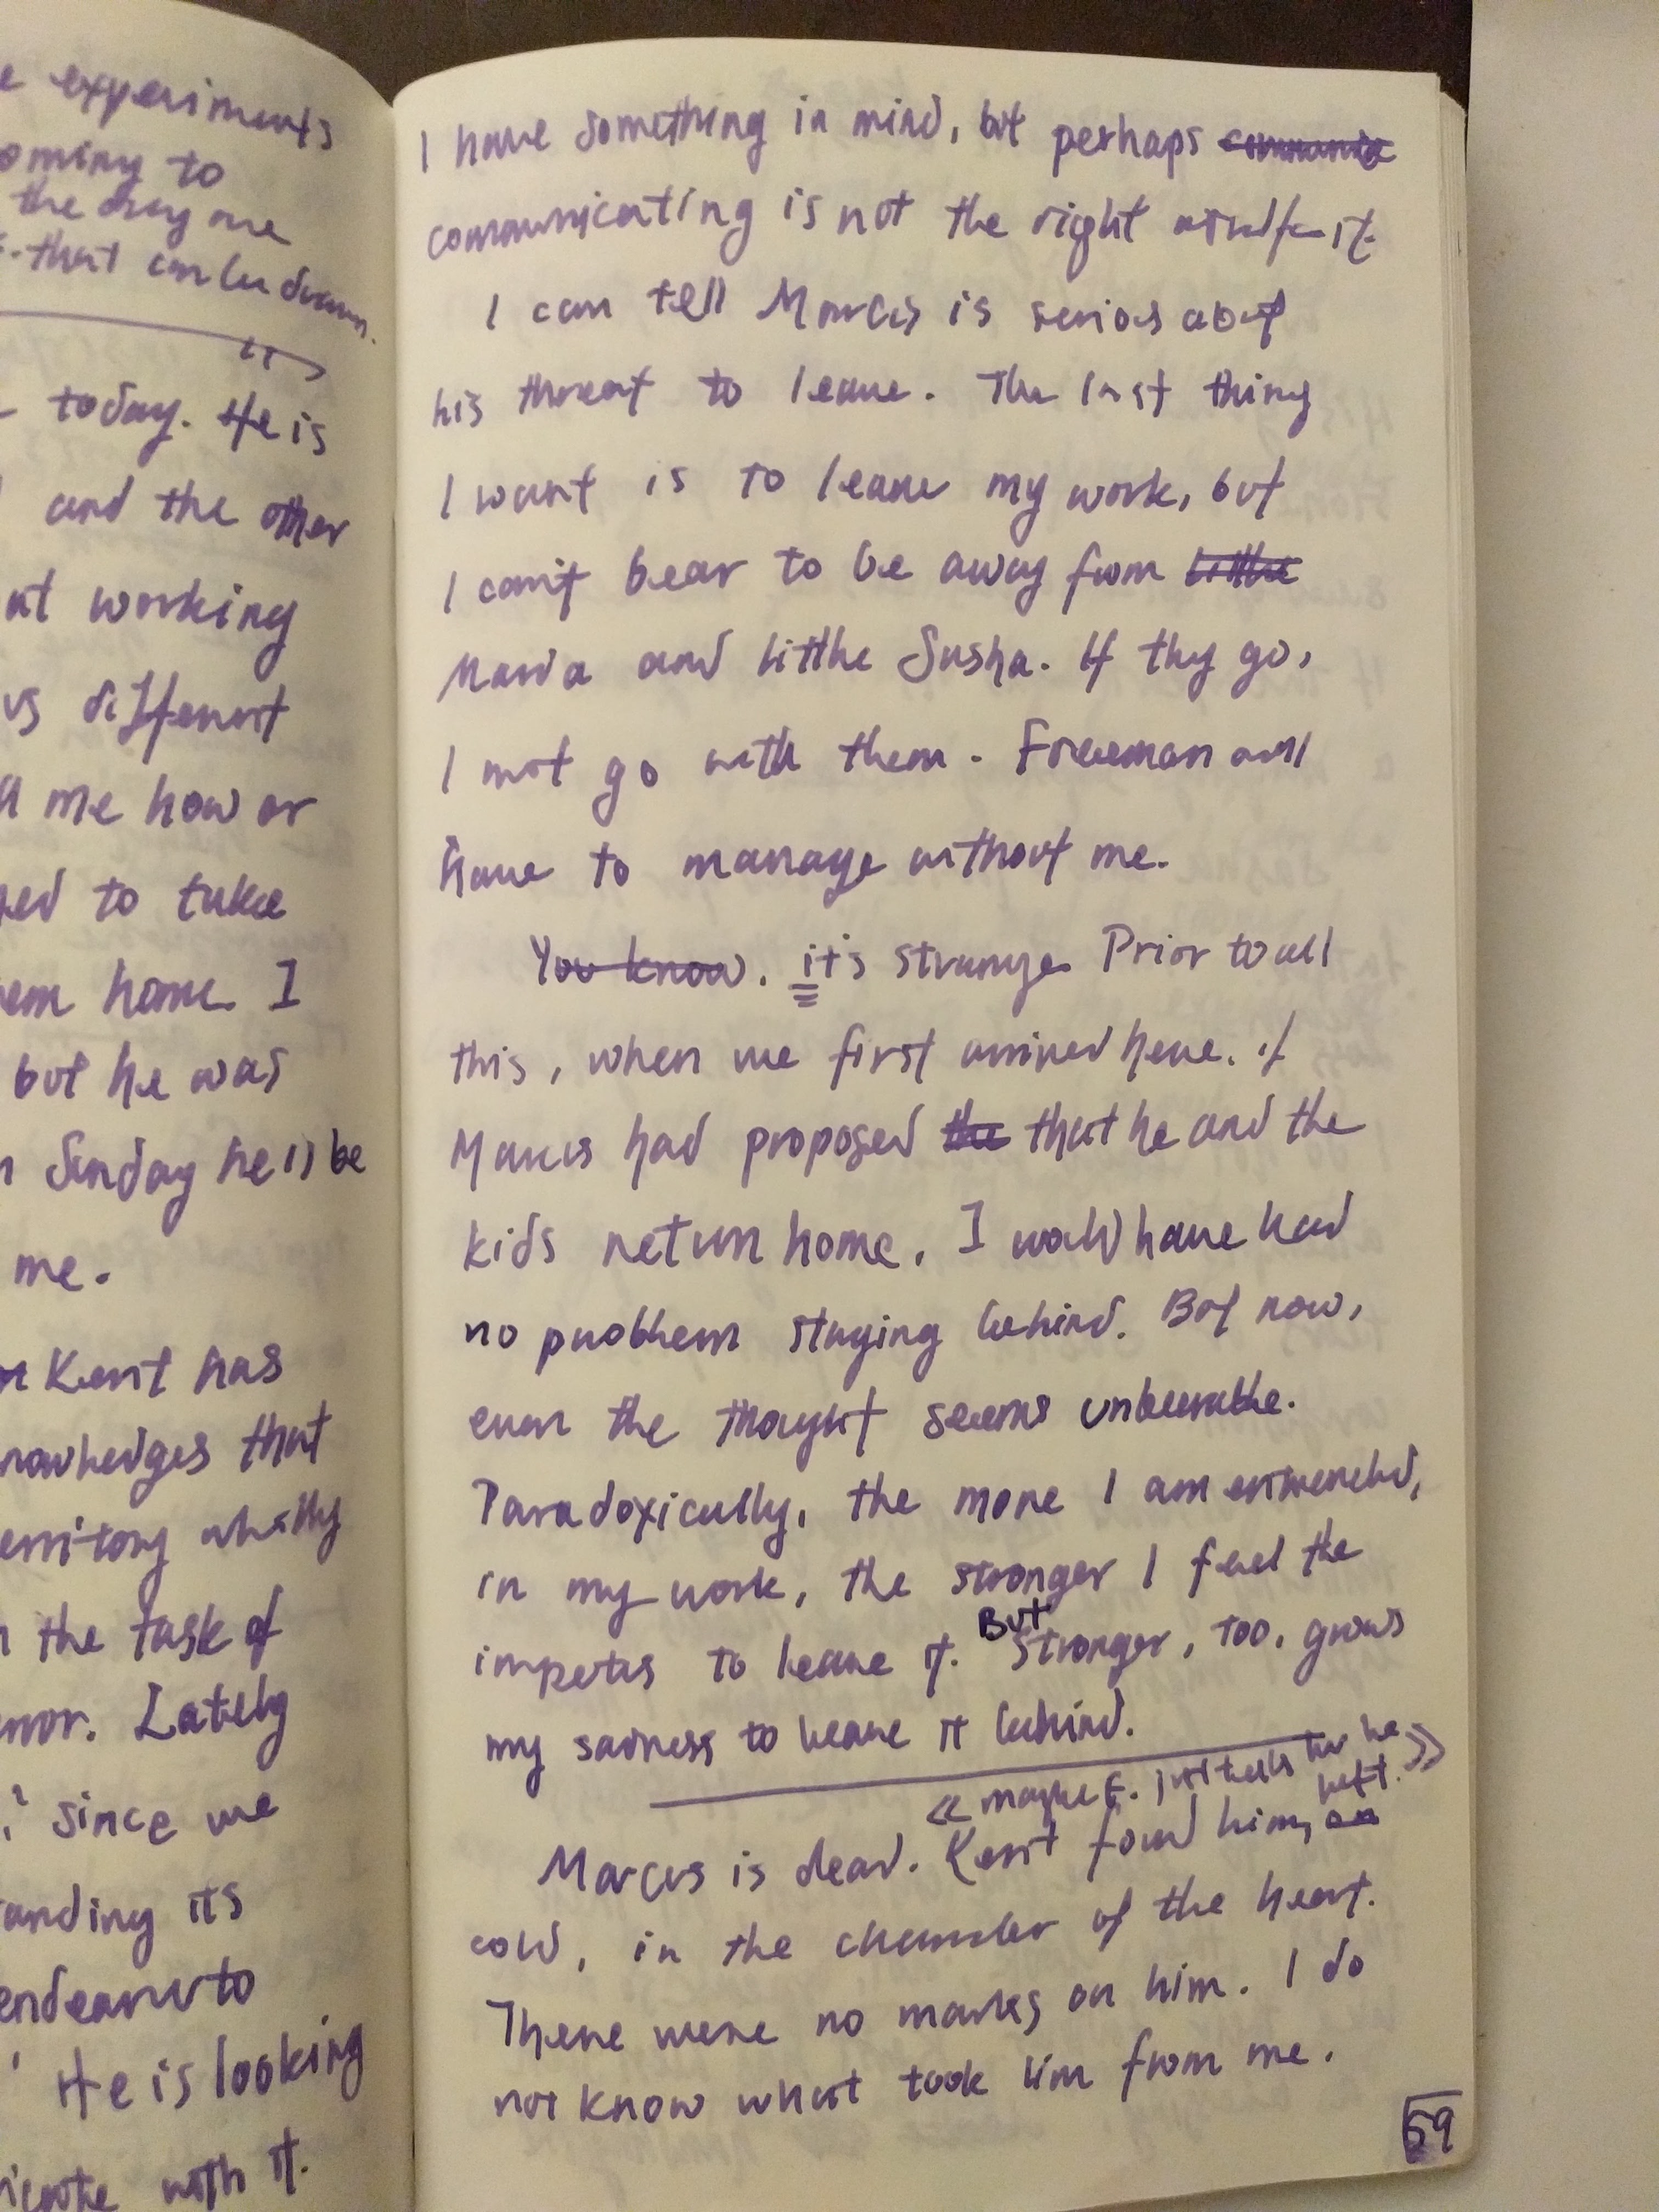 e experiments
oming to
the drug are
that can be drawn.
today. He is
and the other
at working
us different
me how or
ged to take
em home. I
but he was
n Sunday he'll be
me.
Kent has
nowledges that
erritory wholly
the task of
Lately
since we
anding its
endeavor to
He is looking
icate with it.
I have something in mind, but perhaps
communicating is not the right word for it.
I can tell Marcus is serious about
his threat to leave. The last thing
I want is to leave my work, but
I can't bear to be away from little
Maria and little Sasha. If they go,
I must go with them. Freeman will
have to manage without me.
You know. it's strange. Prior to all
this, when we first arrived here, if
Marcus had proposed the that he and the
kids return home, I would have had
no problem staying behind. But now,
even the thought seems unbearable.
Paradoxically, the more I am entrenched,
in my work, the stronger I feel the
impetus to leave it. But stronger, too, grows
my sadness to leave it behind.
« maybe F. just tells her he left. »
Marcus is dead. Kent found him,
cold, in the chamber of the heart.
There were no marks on him. I do
not know what took him from me.
59